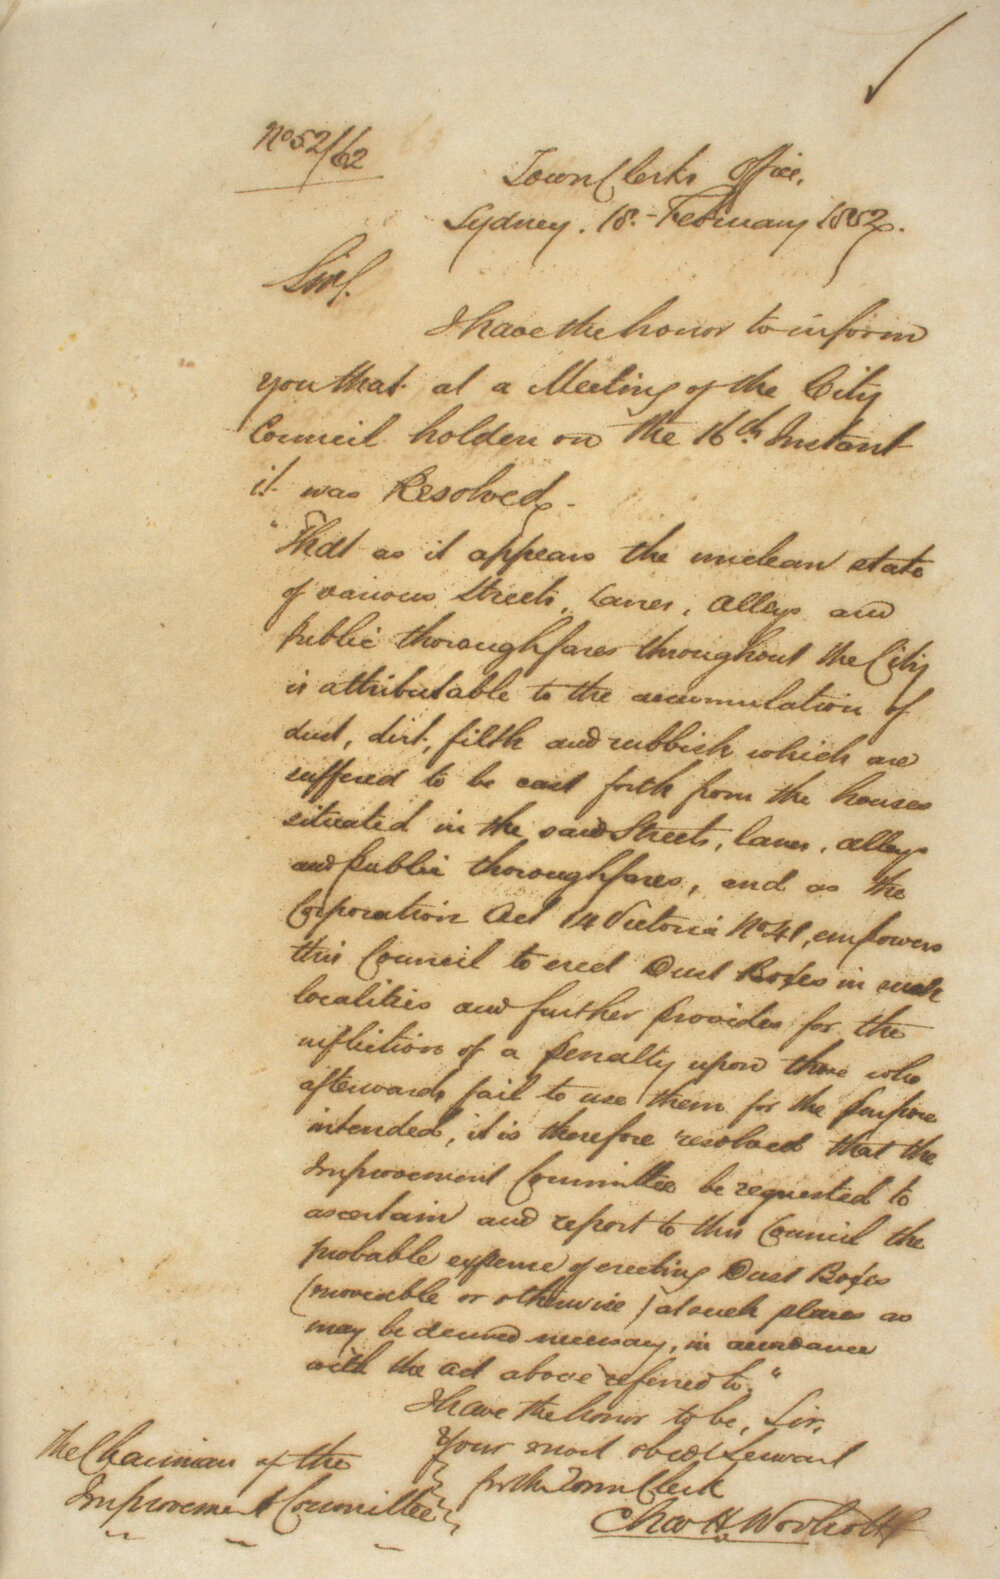 No 52/62
Town Clerks Office.
Sydney. 18.- February 1852.
Sir,
I have the honor to inform
you that at a Meeting of the City
Council holden on the 16th. Instant
it was Resolved -
"That as it appears the unclean state
of various Streets, Lanes, Alleys and
Public thoroughfares throughout the City
is attributable to the accumulation of
dust, dirt, filth and rubbish which are
suffered to be cast forth from the houses
situated in the said Streets, lanes, alleys
and Public thoroughfares, and as the
Corporation Act 14 Victoria No 41, empowers
this Council to erect Dust Boxes in such
localities and further provides for the
infliction of a penalty upon those who
afterwards fail to use them for the purpose
intended, it is therefore resolved that the
Improvement Committee be requested to
ascertain and report to this Council the
probable expense of erecting Dust Boxes
(moveable or otherwise) at such places as
may be deemed necessary, in accordance
with the Act above referred to."
I have the honor to be, Sir,
Your most obedt Servant
for the Town Clerk
Chas H. Woolcott
The Chairman of the
Improvement Committee